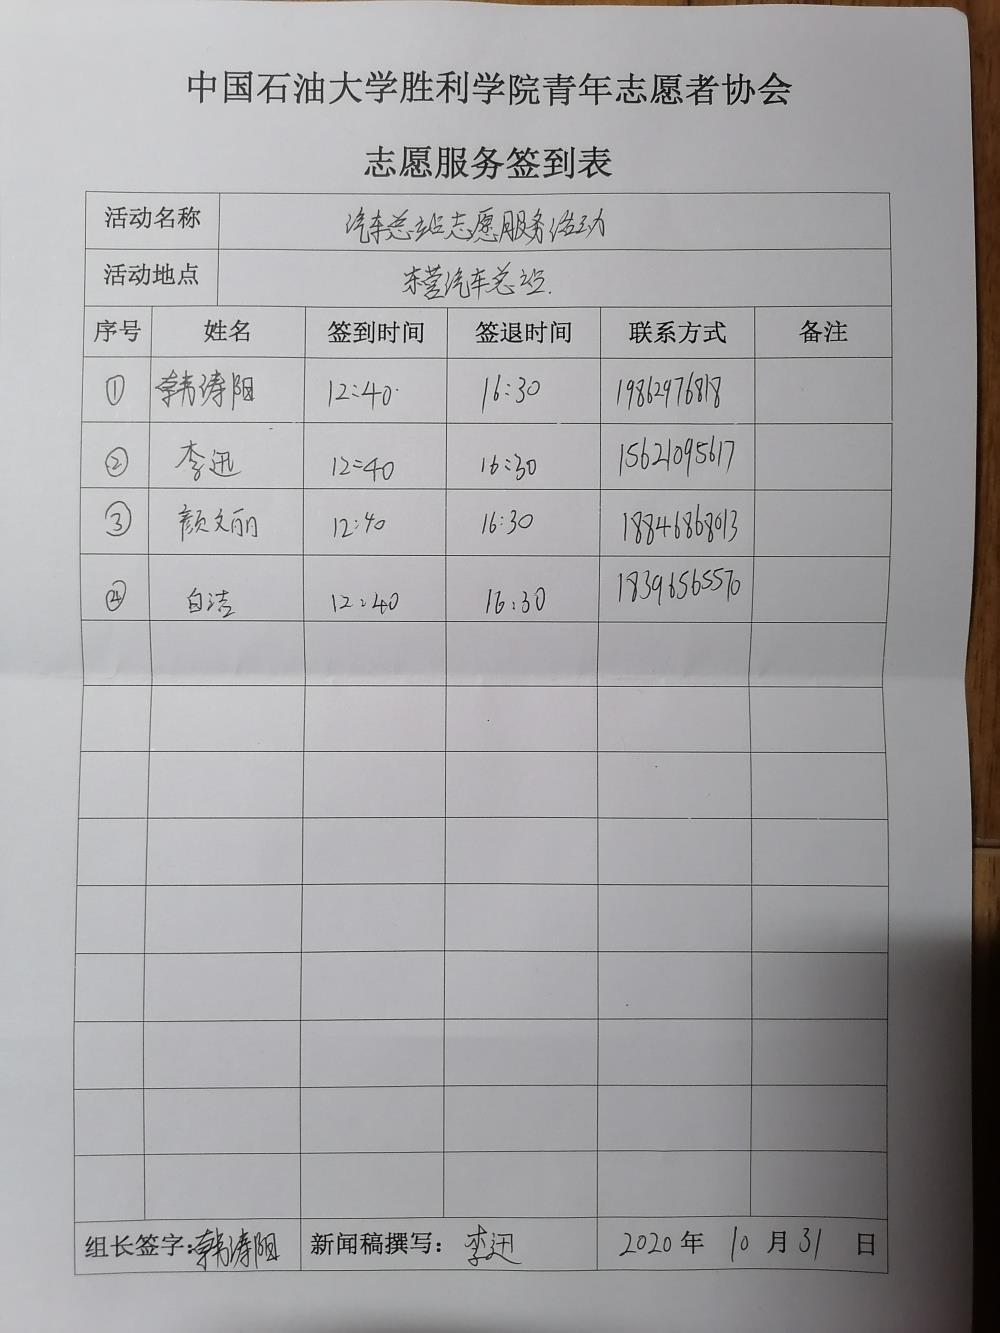 中国石油大学胜利学院青年志愿者协会
志愿服务签到表
活动名称 汽车总站志愿服务活动
活动地点 东营汽车总站.
序号 姓名 签到时间 签退时间 联系方式 备注
① 韩涛阳 12:40 16:30 19862976818
② 李迅 12:40 16:30 15621095617
③ 颜文丽 12:40 16:30 18846868013
④ 白洁 12:40 16:30 18396565570
组长签字:韩涛阳 新闻稿撰写: 李迅 2020年 10月31 日